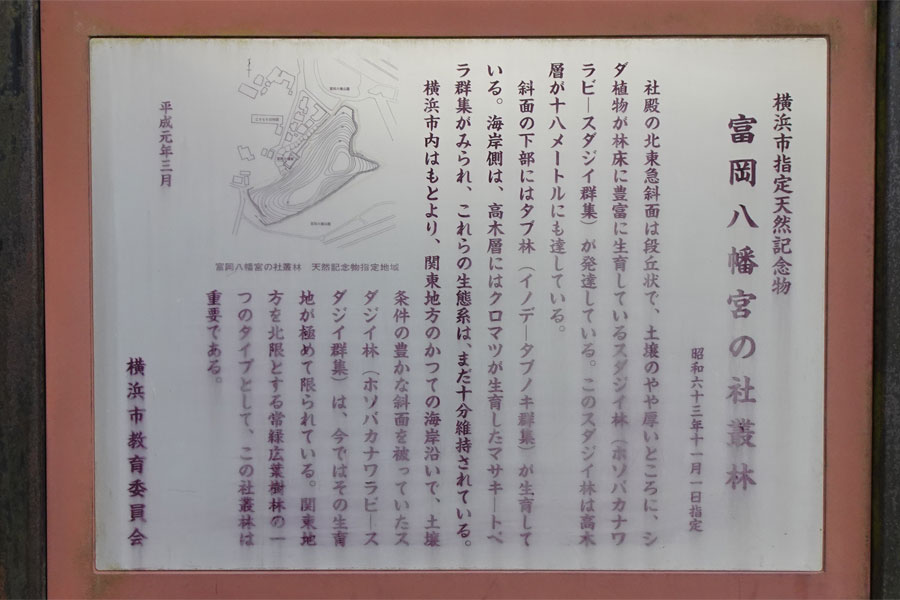 横浜市指定天然記念物
富岡八幡宮の社叢林
昭和六十三年十一月一日指定
社殿の北東急斜面は段丘状で、土壌のやや厚いところに、シ
ダ植物が林床に豊富に生育しているスダジイ林（ホソバカナワ
ラビ―スダジイ群集）が発達している。このスダジイ林は高木
層が十八メートルにも達している。
斜面の下部にはタブ林（イノデ―タブノキ群集）が生育して
いる。海岸側は、高木層にはクロマツが生育したマサキ―トベ
ラ群集がみられ、これらの生態系は、まだ十分維持されている。
横浜市内はもとより、関東地方のかつての海岸沿いで、土壌
条件の豊かな斜面を被っていたス
ダジイ林（ホソバカナワラビ―ス
ダジイ群集）は、今ではその生育
地が極めて限られている。関東地
方を北限とする常緑広葉樹林の一
つのタイプとして、この社叢林は
重要である。
富岡八幡宮の社叢林　天然記念物指定地域
平成元年三月
横浜市教育委員会